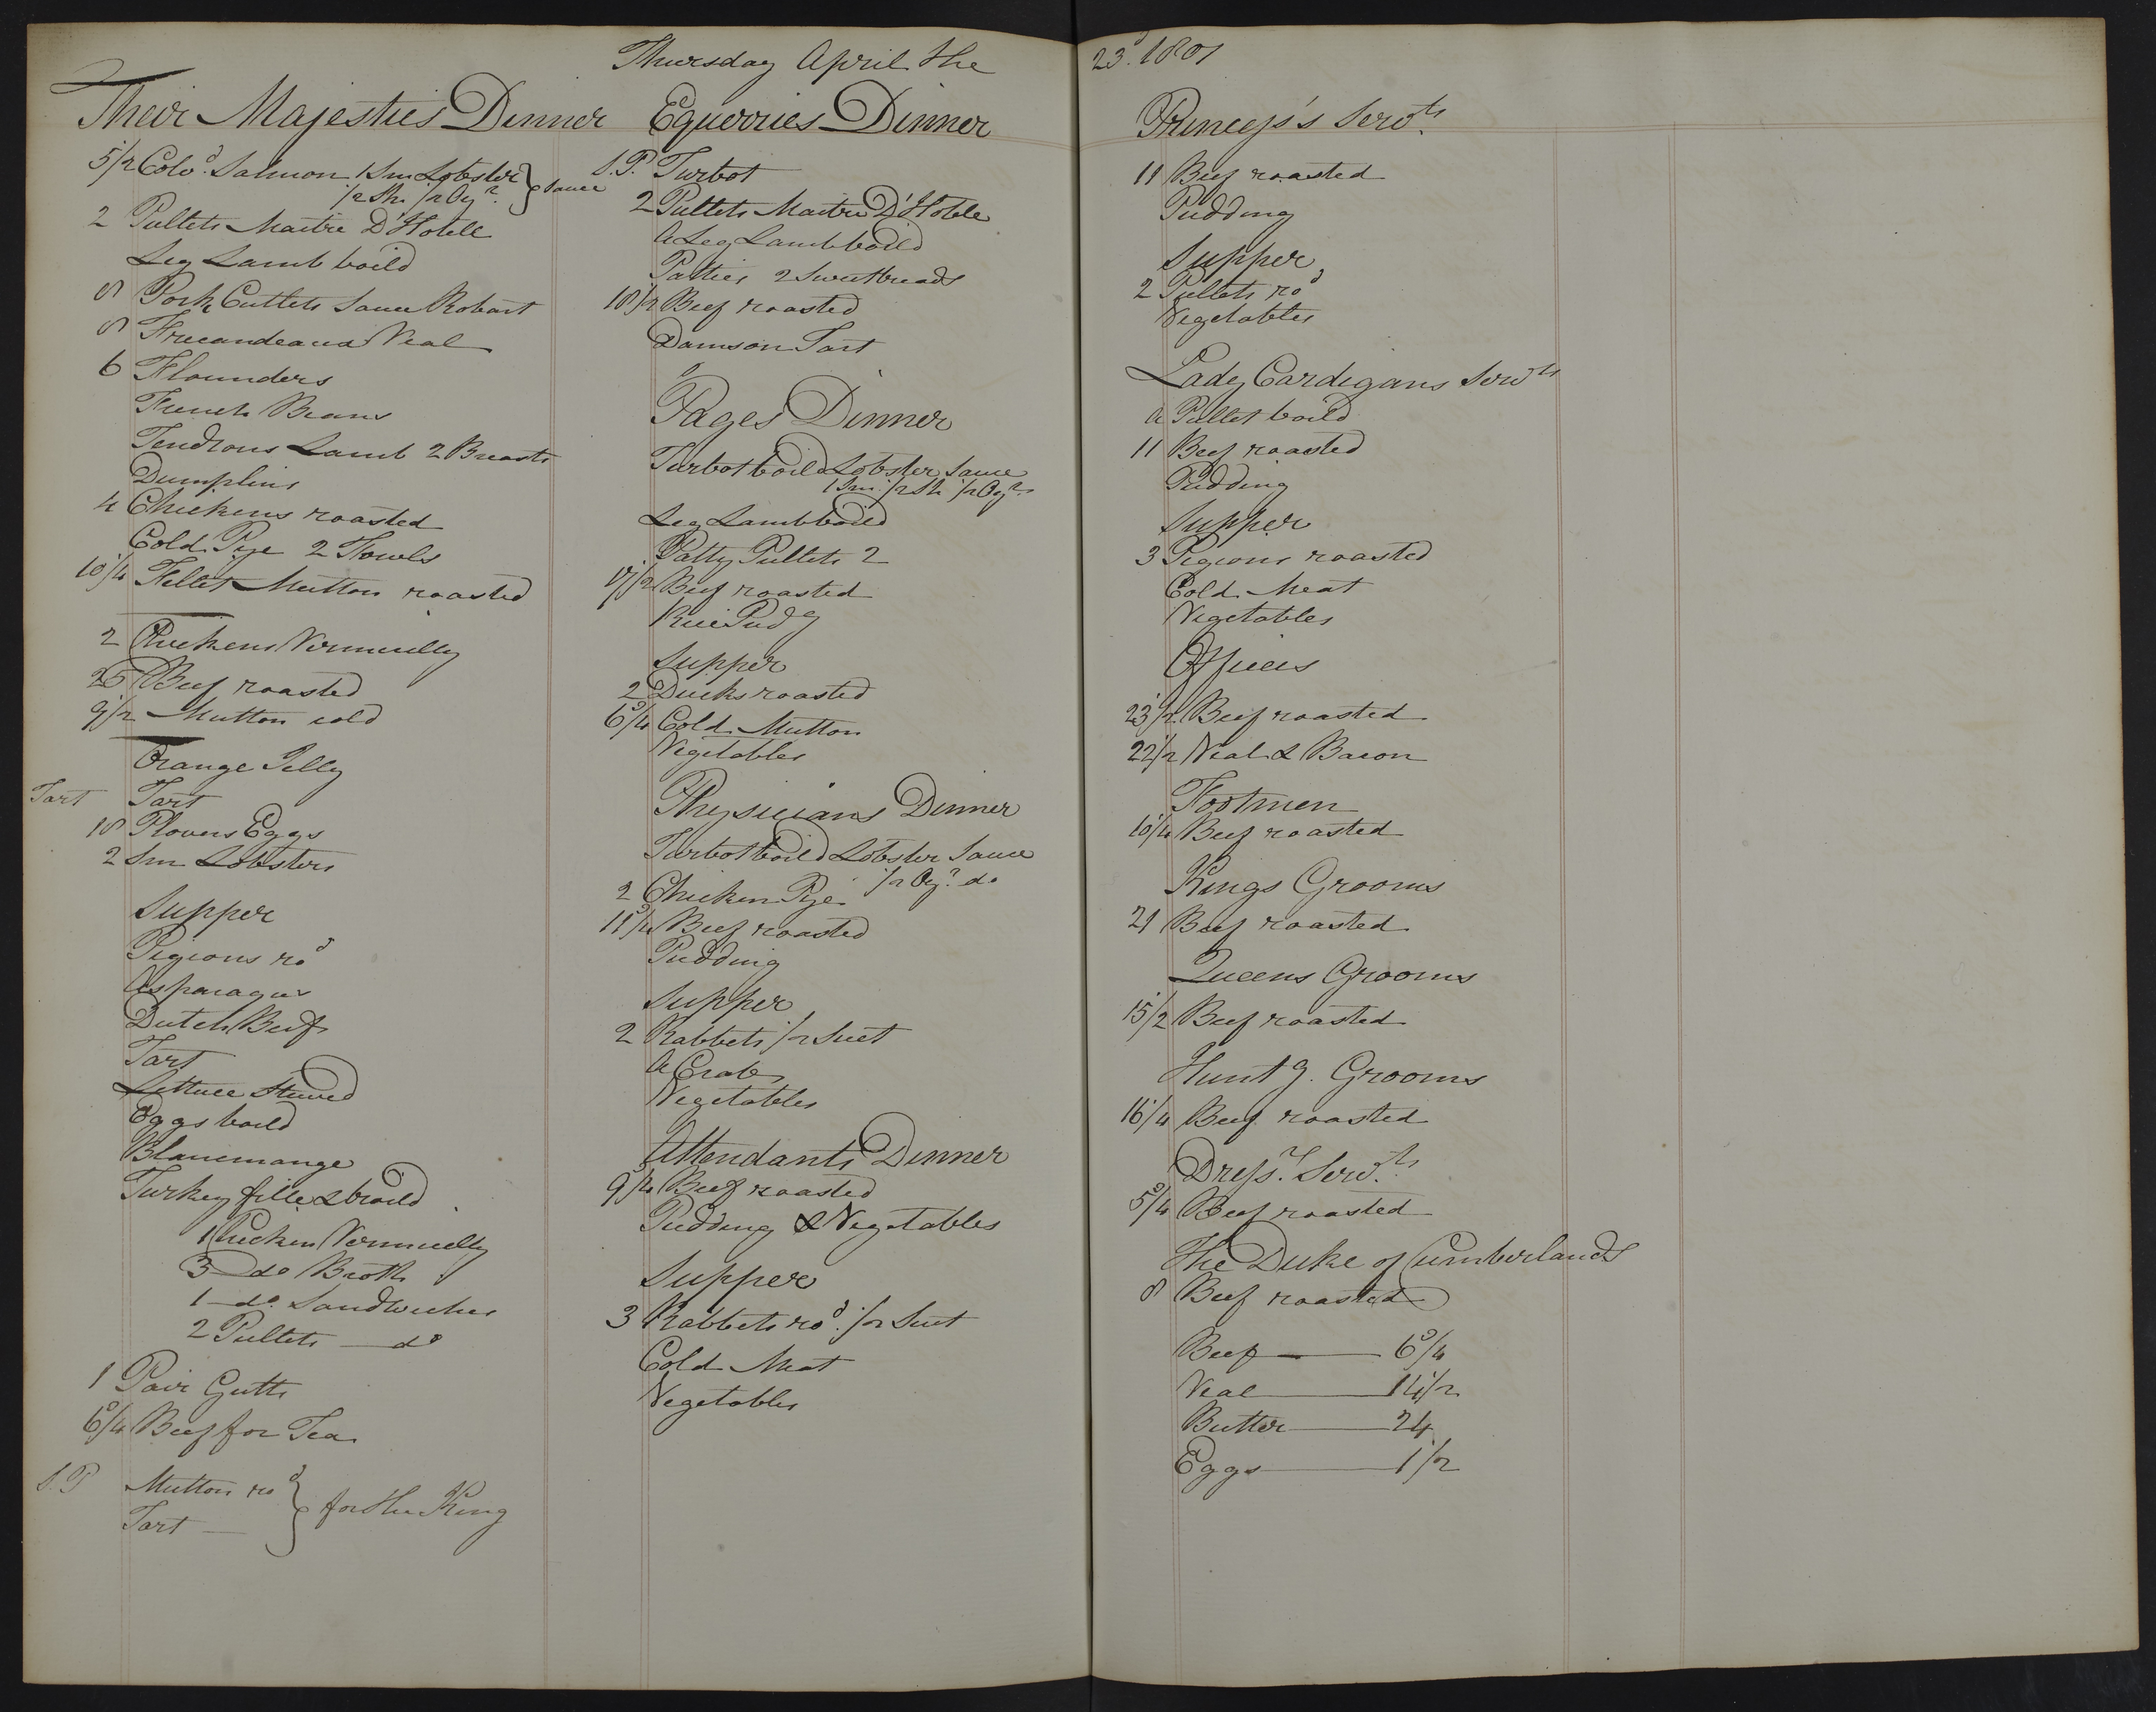 Thursday April the 23.d 1801
Their Majesties Dinner
5 1/2 Colv.d Salmon 1 Sm Lobster } Sauce
1/2 Sh. 1/2 Oy.r
2 Pullets Maitre D'Hotele
Leg Lamb boild
8 Pork Cutlets Sauce Robart
8 Fricandeaua Veal
6 Flounders
French Beans
Tendrons Lamb 2 Breasts
Dumplins
4 Chickens roasted
Cold Pye 2 Fowls
10 1/4 Fillet Mutton roasted
2 Chickens Vermicelly
25 Beef roasted
9 1/2 Mutton cold
Orange Jelly
Tart Tart
18 Plovers Eggs
2 Sm Lobsters
Supper
Pigeons ro.d
Asparagus
Dutch Beef
Tart
Lettuce Stewed
Eggs boild
Blancmange
Turkey fille & broild
1 Chicken Vermicelly
3 do Broth
1 do. Sandwiches
2 Pullets do
1 Pair Gutts
6 3/4 Beef for Tea
S.P Mutton ro.d } for the King
Tart
Equerries Dinner
S.P. Turbot
2 Pullets Maitre D'Hotele
A Leg Lamb boild
Patties 2 Sweetbreads
18 1/2 Beef roasted
Damson Tart
Pages Dinner
Turbot boild Lobster Sauce
1 Sm. 1/2 Sh 1/2 Oy.r
Leg Lamb boild
Patty Pullets 2
17 1/2 Beef roasted
Rice Pudg
Supper
2 Ducks roasted
6 3/4 Cold Mutton
Vegetables
Physicians Dinner
Turbot boild Lobster Sauce
1/2 Oy.r do
2 Chicken Pye
11 3/4 Beef roasted
Pudding
Supper
2 Rabbets 1/2 Suet
A Crab
Vegetables
Attendants Dinner
9 3/4 Beef roasted
Pudding & Vegetables
Supper
3 Rabbets ro.d 1/2 Suet
Cold Meat
Vegetables
Princess's Serv.ts
11 Beef roasted
Pudding
Supper
2 Pullets ro.d
Vegetables
Lady Cardigans Serv.ts
A Pullet boild
11 Beef roasted
Pudding
Supper
3 Pigeons roasted
Cold Meat
Vegetables
Offices
23 1/2 Beef roasted
22 1/2 Veal & Bacon
Footmen
10 1/4 Beef roasted
Kings Grooms
21 Beef roasted
Queens Grooms
15 1/2 Beef roasted
Hunt.g Grooms
16 1/4 Beef roasted
Dress.r Serv.ts
5 3/4 Beef roasted
The Duke of Cumberlands
8 Beef roasted
Beef 6 3/4
Veal 14 1/2
Butter 24
Eggs 1 1/2